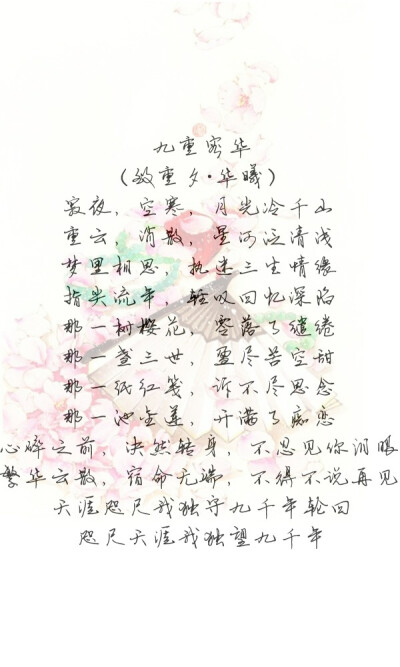 九重密华
（致重夕·华曦）
寂夜，空寒，月光冷千山
重云，消散，星河泛清浅
梦里相思，执迷三生情缘
指尖流年，轻叹回忆深陷
那一树樱花，零落了缱绻
那一盏三世，盈尽苦空甜
那一纸红笺，诉不尽思念
那一池金莲，开满了痴恋
心碎之前，决然转身，不忍见你泪眼
繁华云散，宿命无端，不得不说再见
天涯咫尺我独守九千年轮回
咫尺天涯我独望九千年